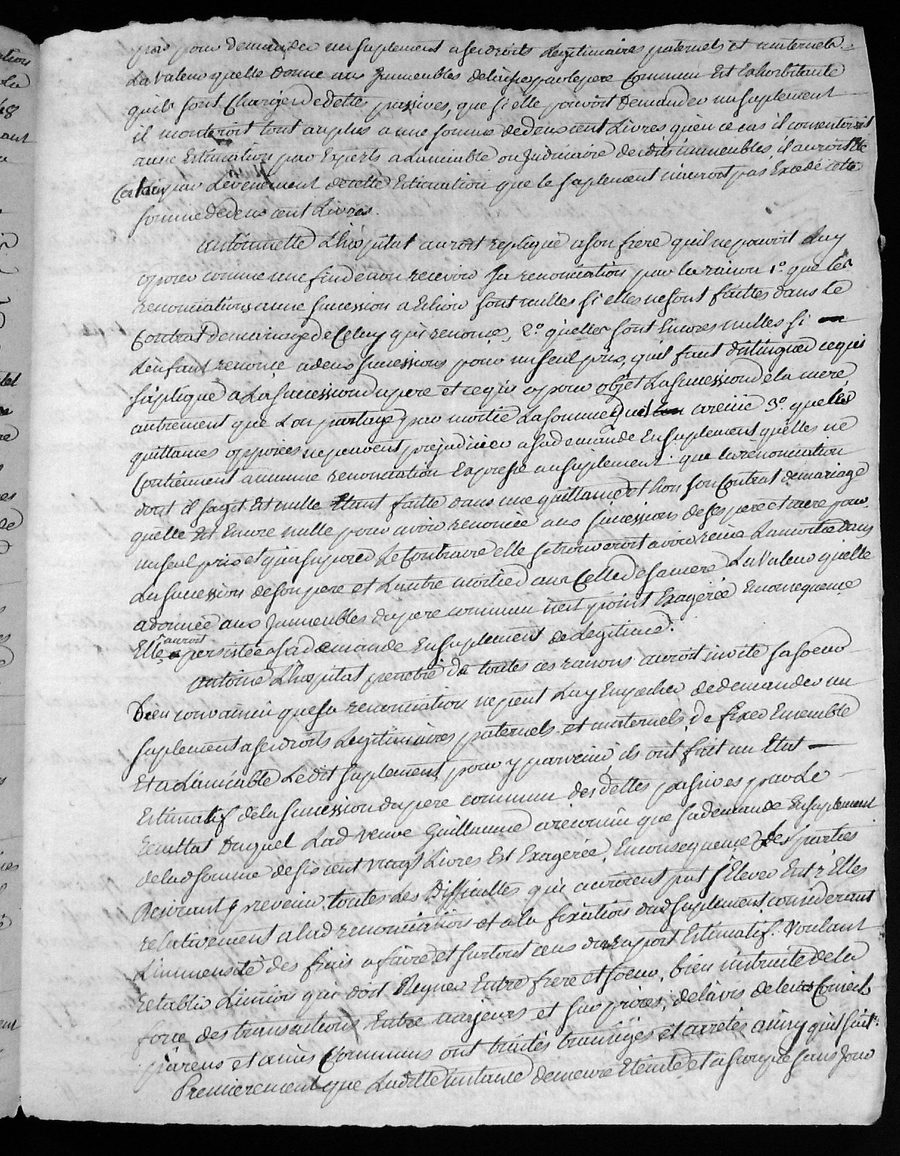 pas pour demander un suplement a ses droits Legitimaires paternels et maternels
La valeur quelle donne aux Jmmeubles delaissés par le pere Commun Est Exhorbitante
quils sont Chargés de dettes passives, que si elle pouvoit Demander un suplement
il monteroit tout au plus a une somme de deux cent Livres quen ce cas il consentiroit
a une Estimation par Experts a Lamiable ou Judiciaire desdits immeubles il auroit Ete
Certain par Levenement de cette Estimation que le suplement nauroit pas Excedé cette
somme de deux cent Livres.
Antoinette Lhopital auroit repliqué a son frere quil ne pouvoit Luy
oposer comme une fin de non recevoir sa renonciation par la raison 1°. que les
renonciations a une sucession a Echoir sont nulles si elles ne sont faittes dans le
Contrat de mariage de Celuy qui renonce, 2°. quelles sont Encores nulles si
Lenfant renonce a deux sucessions pour un seul prix, quil faut distinguer ce qui
saplique a La sucession du pere et ce qui a pour objet La sucession de la mere
autrement que Lon partage par moitié La somme quil a reçüe 3°. que les
quittances opposées ne peuvent prejudicier a sa demande En suplement quelles ne
Contiennent aucune renonciation Expresse au suplement que la renonciation
dont il sagit Est nulle Etant faitte dans une quittance et hors son Contrat de mariage
quelle Est Encore nulle pour avoir renoncée aux sucessions de ses pere et mere pour
un seul prix et qua suposer Le Contraire elle se trouveroit avoir reçu La moitié dans
La sucession de son pere et Lautre moitié dans Celle de sa mere La Valeur quelle
a donnée aux Jmmeubles du pere commun n'est point Exagerée En consequence
Elle auroit persistée a sa demande En suplement de Legitime.
Antoine Lhopital penetré de toutes ces raisons auroit invité sa soeur
Bien convaincu que sa renonciation ne peut Luy Empecher de demander un
suplement a ses droits Legitimaires paternels et maternels de fixer Ensemble
Et a Lamiable Le dit suplement, pour y parvenir ils ont fait un Etat
Estimatif de la sucession du pere commun des dettes passives par Le
resultat Duquel Lad. Veuve Guillaume a reconnu que sa demande En suplement
de lad. somme de six cent vingt Livres Est Exagerée, En consequence Les parties
Desirant prevenir toutes Les Difficultés qui auroient put sElever Entr'Elles
relativement a lad. renonciation et a la fixation dud. suplement considerant
Limmensité des frais a faire et surtout ceux du raport Estimatif. Voulant
retablir Lunion qui doit Regner Entre frere et soeur, bien instruits de la
force des transactions Entre majeurs et sur procés, de lavis de leurs Conseils
parens et amis Communs ont traités transigés et arretés ainsy quil suit.
Premierement que Laditte instance demeure Eteinte et assoupie sans jour